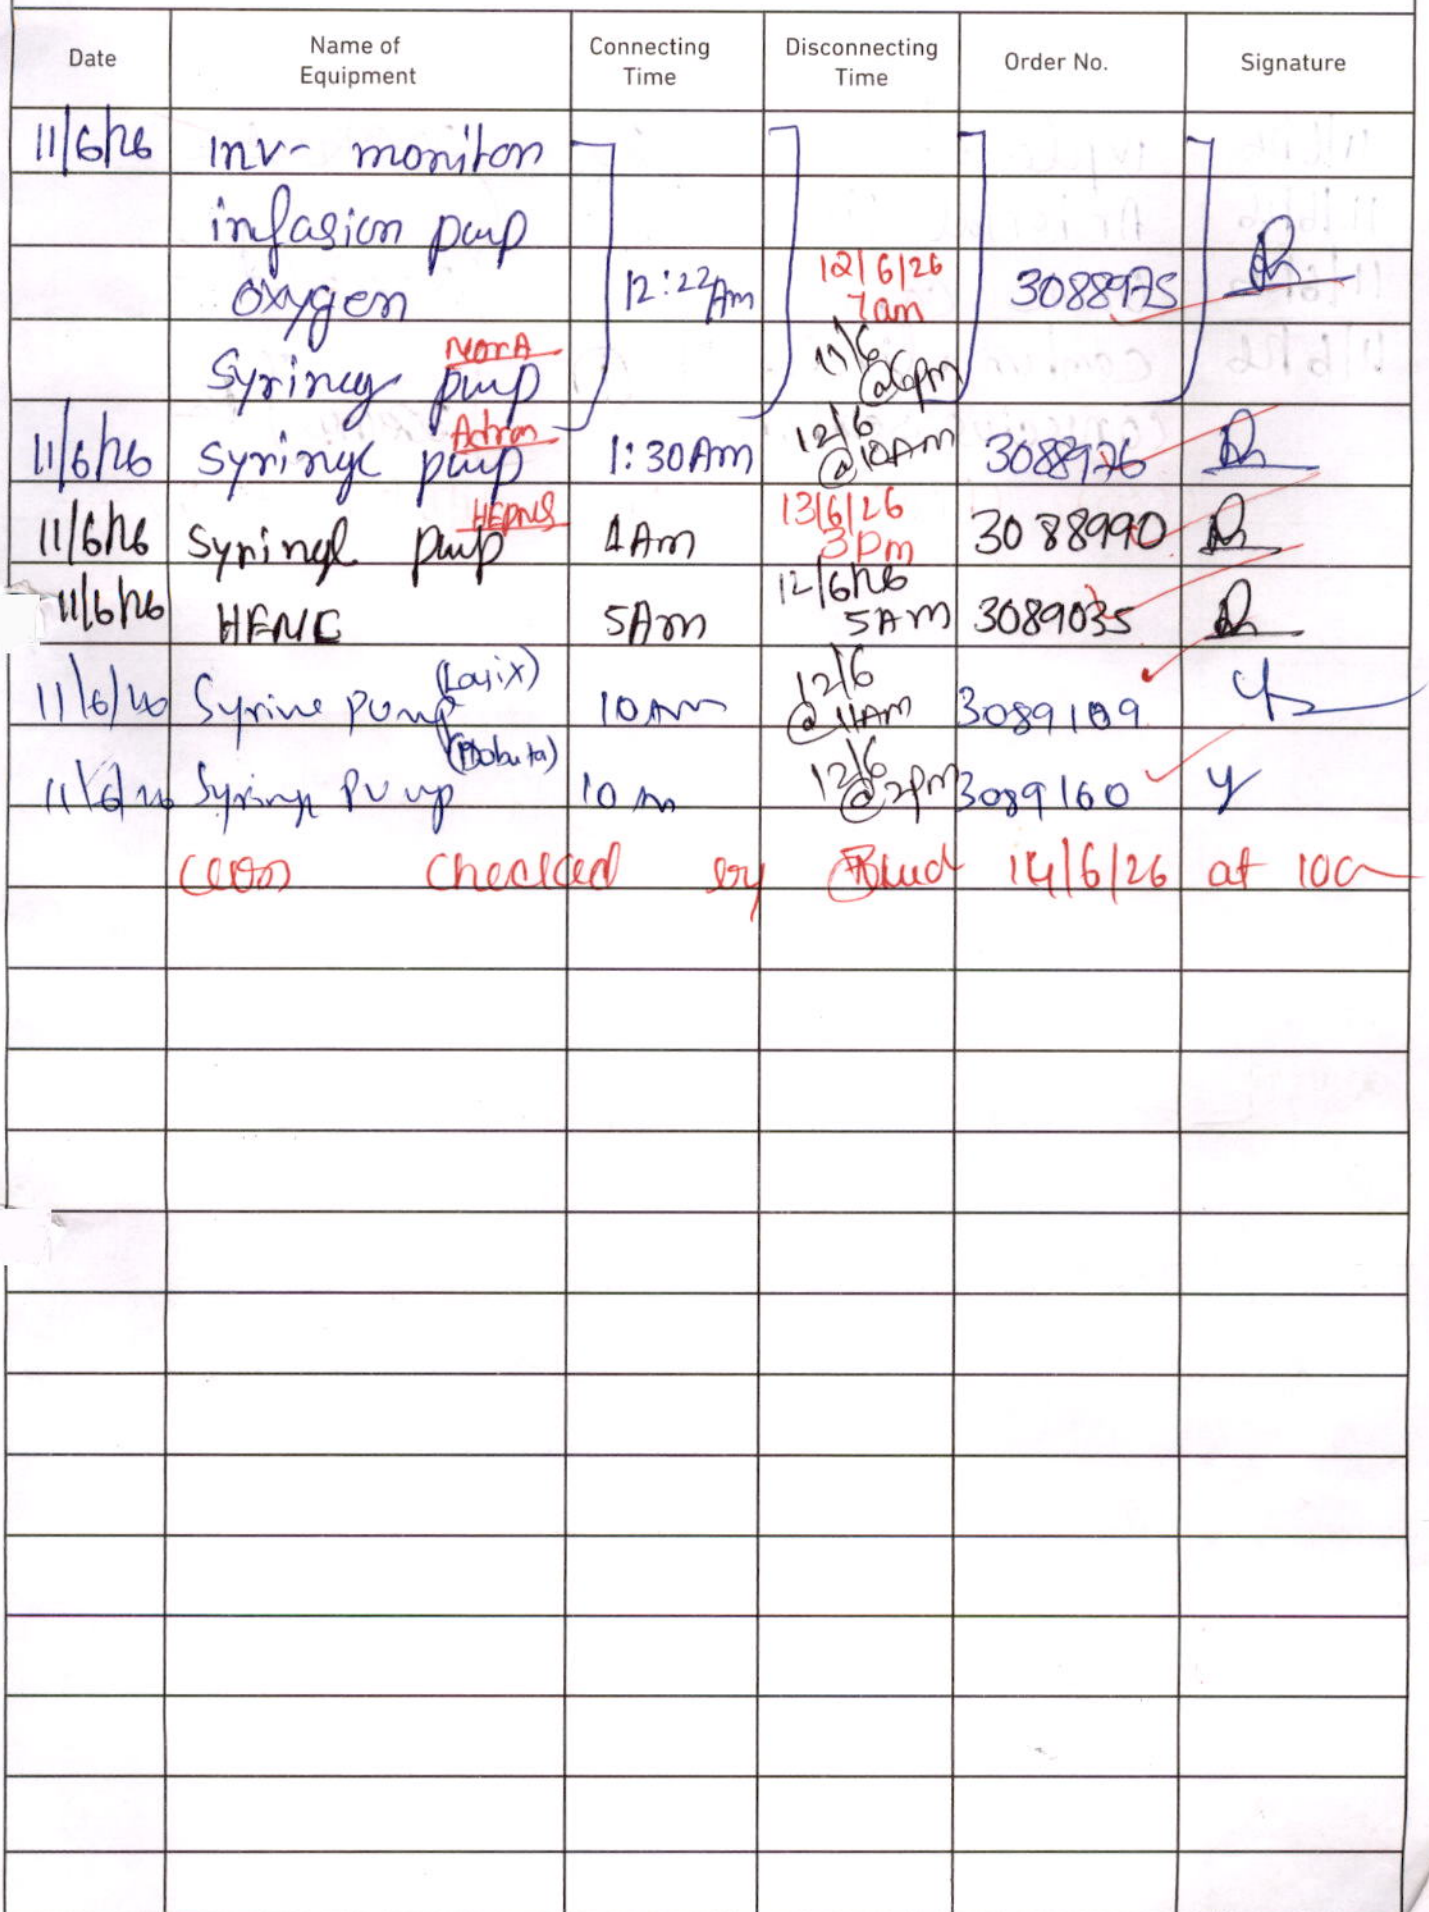 Date Name of Equipment Connecting Time Disconnecting Time Order No. Signature
11/6/26 Inv- moniton
infasion pup
oxygen 12:22Am 12/6/26 7am 3088975
Syringe pup NorA 11/6 @6pm
11/6/26 Syringe pup 1:30Am 12/6 @10AM 3088976
11/6/26 Syringe pup 13/6/26 3pm 3088990
11/6/26 HFNC 5Am 12/6/26 5AM 3089035
11/6/26 Syrine pump (Lasix) 10 Am 12/6 @ 11AM 3089109
11/6/26 Syringe pump (Dobuta) 10 Am 12/6 @ 2pm 3089160
checked by 14/6/26 at